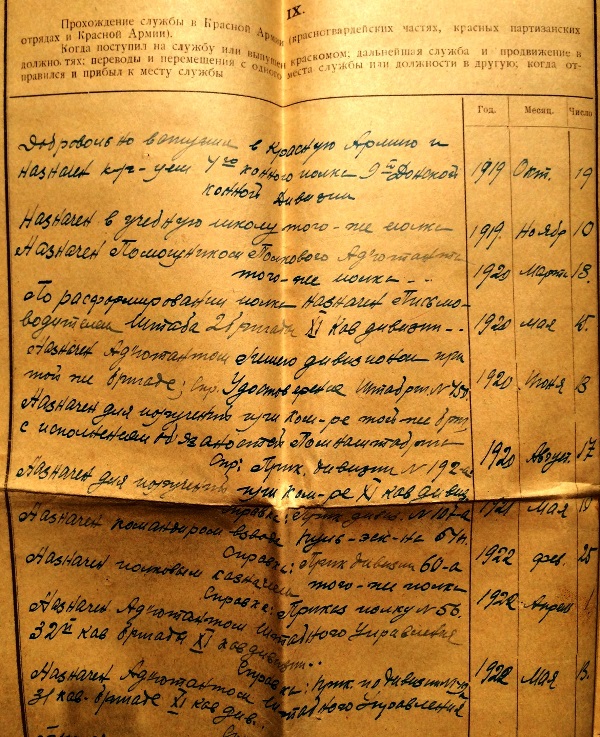 IX.
Прохождение службы в Красной Армии (красногвардейских частях, красных партизанских
отрядах и Красной Армии).
Когда поступил на службу или выпущен краскомом; дальнейшая служба и продвижение в
должностях; переводы и перемещения с одного места службы или должности в другую; когда от-
правился и прибыл к месту службы
Год. Месяц. Число
Добровольно вступил в Красную Армию и
назначен кр-цем 4го конного полка 9й Донской
конной Дивизии 1919 Окт. 19
Назначен в учебную школу того-же полка 1919. Ноябр 10
Назначен Помощником Полкового Адъютанта
того-же полка 1920 Март 18.
По расформировании полка назначен Письмо-
водителем Штаба 2 бригады XI Кав дивизии 1920 Мая 15.
Назначен Адъютантом дивизиона при
той же бригаде; Спр. Удостоверение Штабр. N 1920 Июня 13
Назначен для поручений при ком-ре той же бриг
с исполнением обязаностей Помнаштабрига
Спр: Прик. дивизии N 192 1920 Август. 17
Назначен для поручений при ком-ре XI кав дивиз.
Справка: Прик. дивиз. N 1921 Мая
Назначен командиром взвода
Справка: Прик дивизии 60-а 1922 фев. 25
Назначен полковым казначеем того-же полка
Справка: Приказ полку N 56. 1922 Апрел
Назначен Адъютантом Штабного Управления
32й кав бригады XI кав дивизии
Справка: прик по дивизии N 1922 Мая 13.
Назначен Адъютантом Штабного Управления
31 кав. бригаде XI кав див.